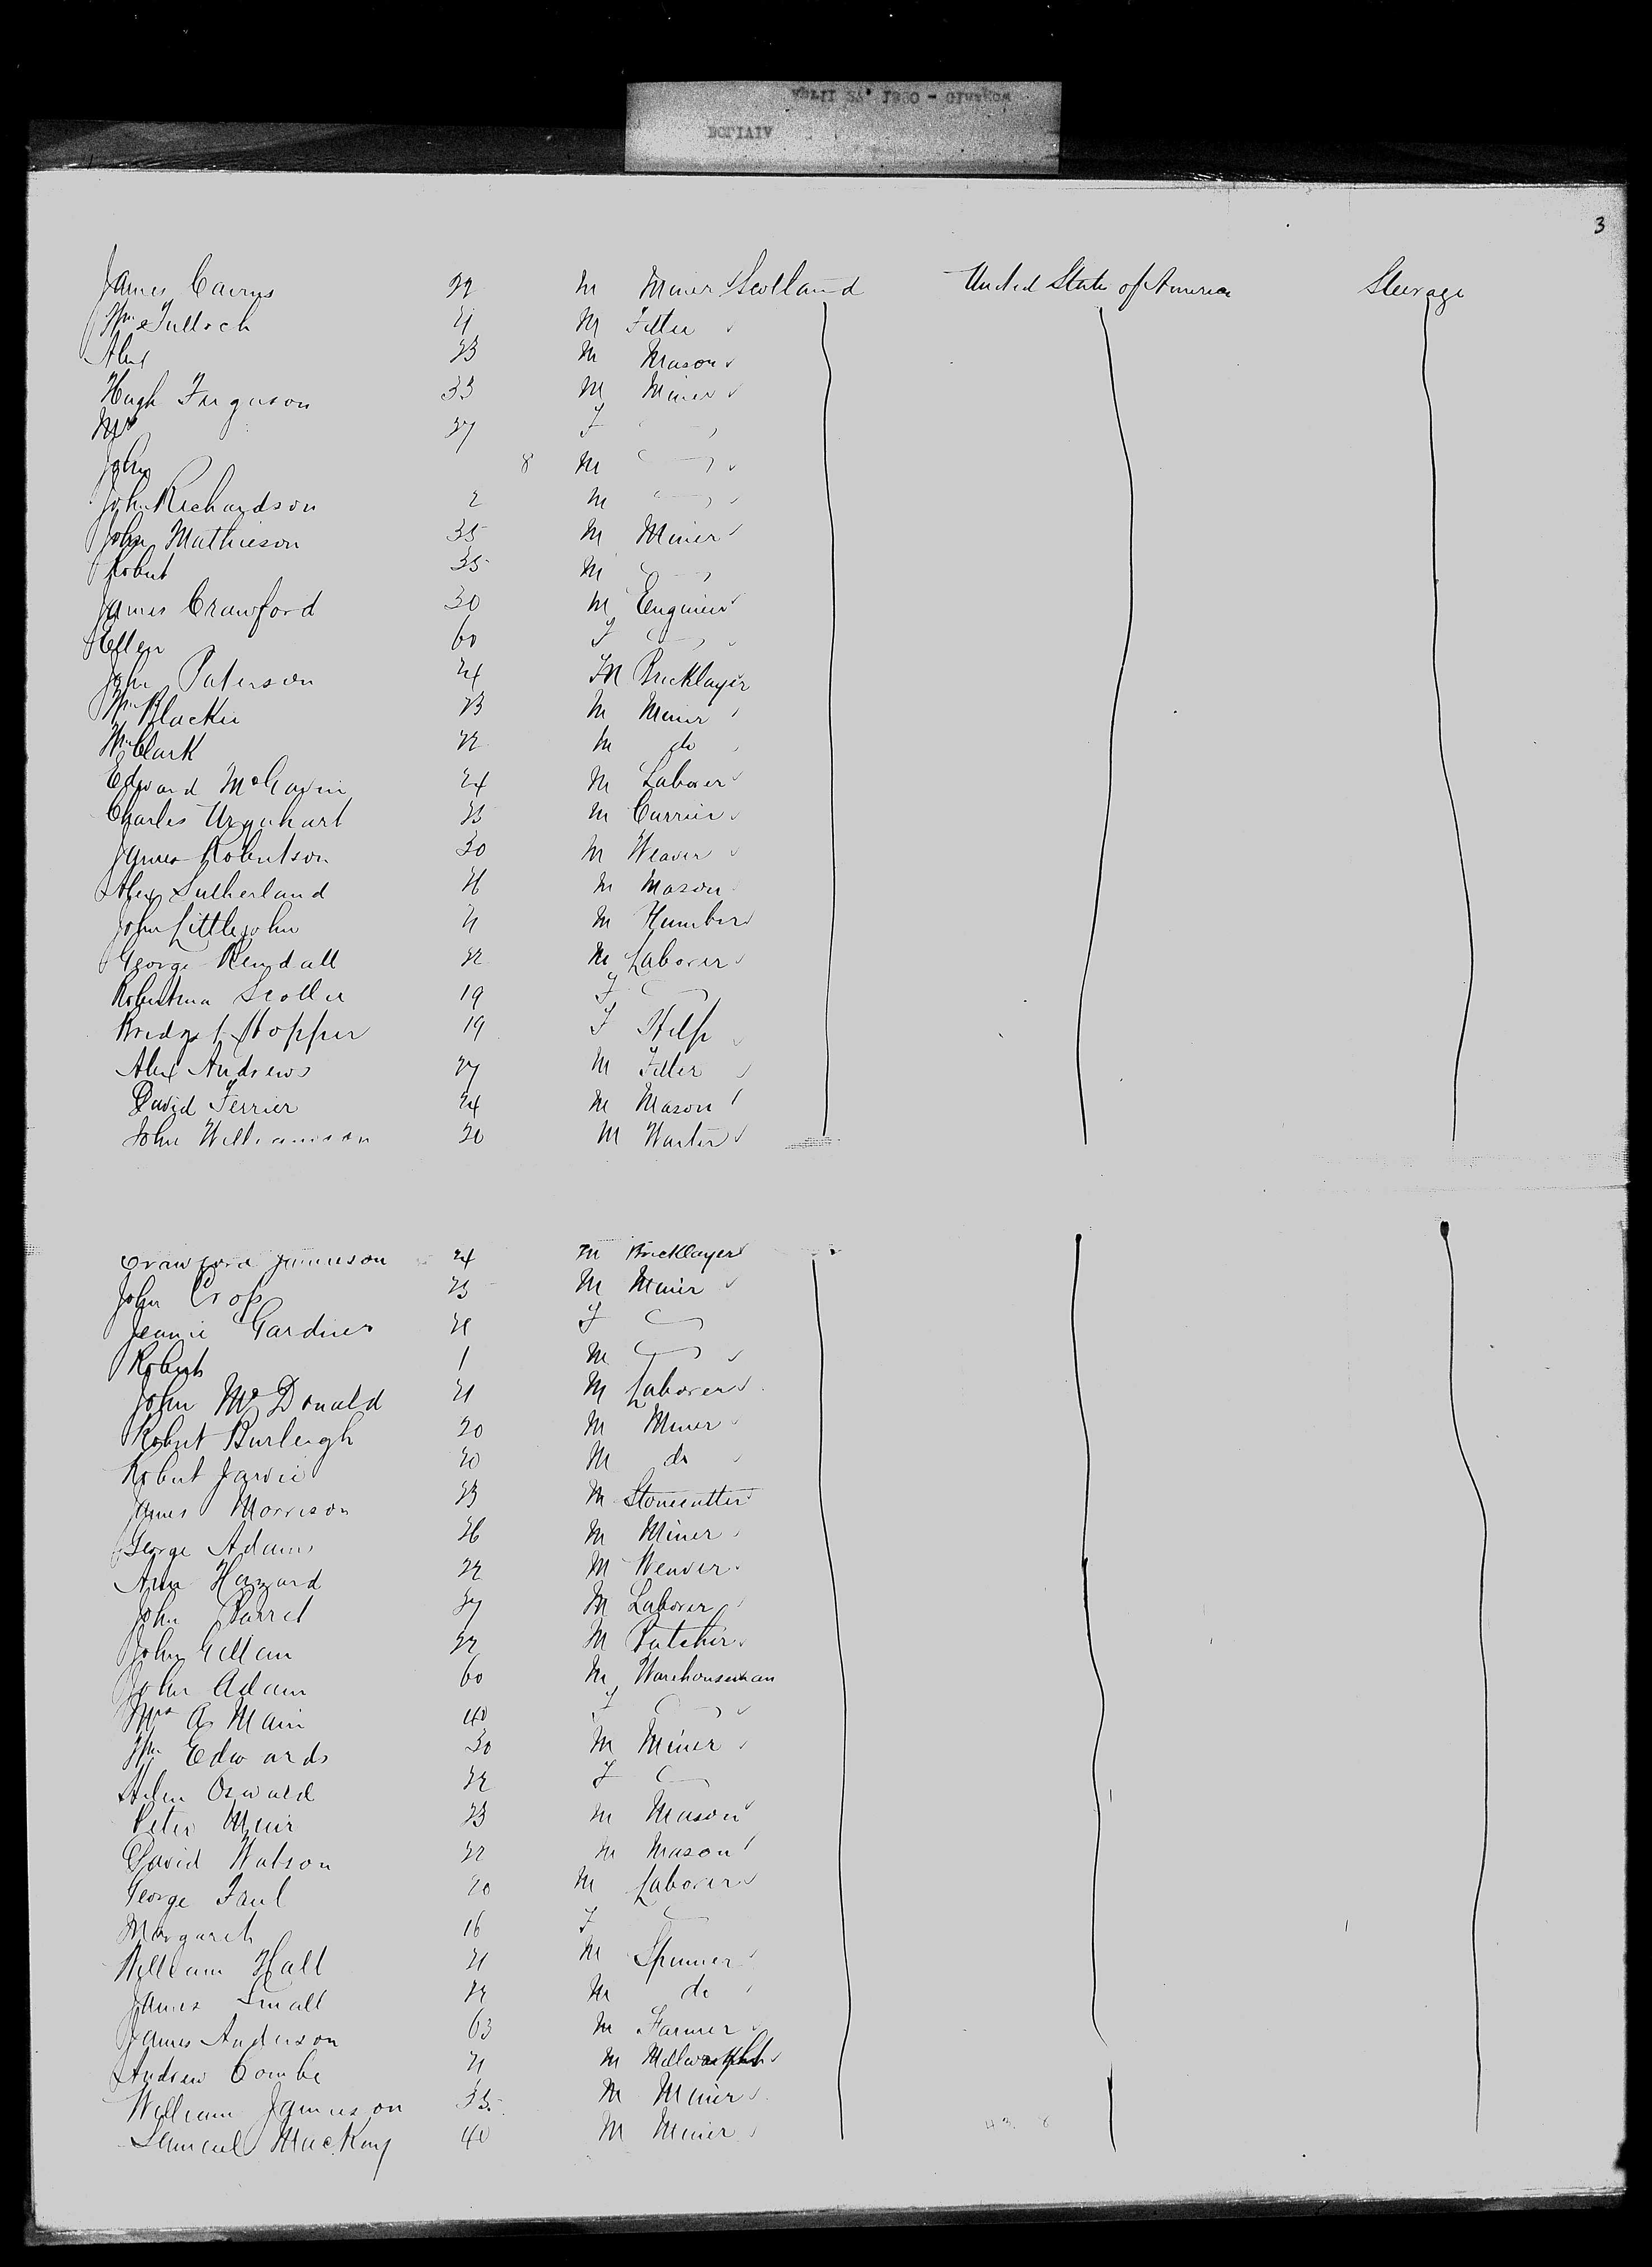 3
James Cairns 22 M Miner Scotland United State of America Steerage
Wm Tulloch 21 M Fitter
Alex 23 M Mason
Hugh Ferguson 33 M Miner
Mrs 27 F
John 8 M
John Richardson 2 M
John Mathieson 35 M Miner
Robert 35 M
James Crawford 30 M Engineer
Ellen 60 F
John Paterson 24 M Bricklayer
Wm Blackie 23 M Miner
Wm Clark 22 M do
Edward McGavin 24 M Laborer
Charles Urquhart M Currier
James Robertson 30 M Weaver
Alex Sutherland 26 M Mason
John Littlejohn 21 M
George Kendall 22 M Laborer
Robertina 19 F
Bridget Hopper 19 F Help
Alex Andrews 27 M Fitter
David Ferrier 24 M Mason
John Williamson 20 M
Crawford Jamieson 24 M Bricklayer
John M Miner
Jeanie Gardner F
Robert 1 M
John McDonald 21 M Laborer
Robert Burleigh 20 M Miner
Robert Jarvie 20 M do
James Morrison 23 M Stonecutter
George Adams 26 M Miner
Hazzard 22 M Weaver
John Barret 27 M Laborer
John Gillan 22 M Butcher
John Adam 60 M Warehouseman
Mrs A Main 40 F
Wm Edwards 30 M Miner
Helen Oswald 22 F
Peter Muir 23 M Mason
David Watson 22 M Mason
George 20 M Laborer
Margaret 16 F
William Hall 21 M Spinner
James Small 22 M do
James Anderson 63 M Farmer
Andrew Combe 21 M Millwright
William Jamieson 35 M Miner
Samuel MacKay 40 M Miner